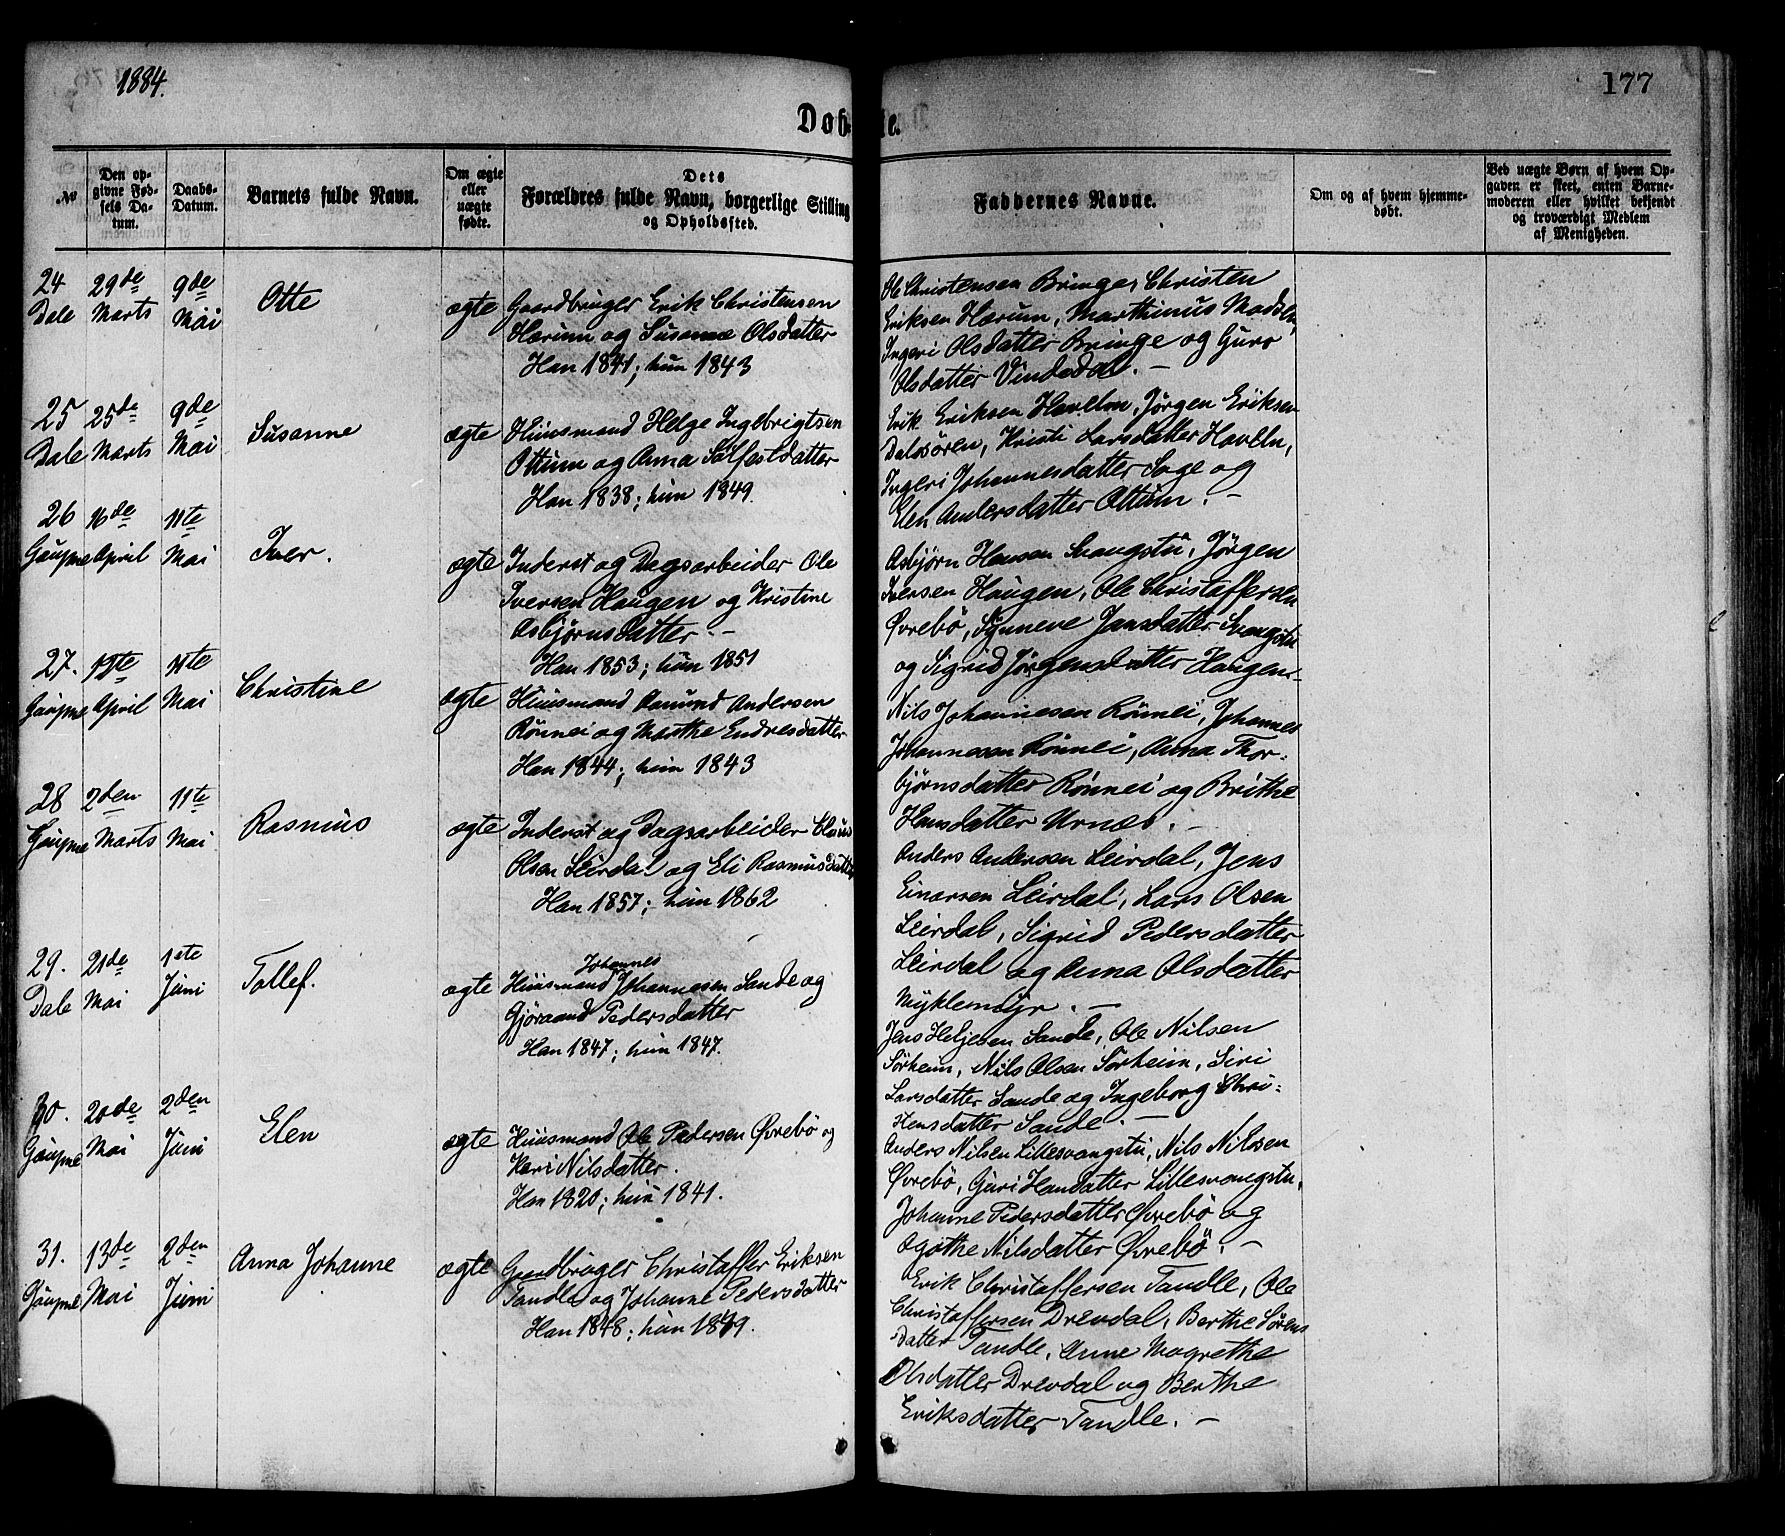 1884.
177
Døbte.
№
Den op-
givne Fød-
sels Da-
tum.
Daabs-
Datum.
Barnets fulde Navn.
Om ægte
eller
uægte
født.
Dets
Forældres fulde Navn, borgerlige Stilling
og Opholdssted.
Faddernes Navne.
Om og af hvem hjemme-
døbt.
Ved uægte Børn af hvem Op-
gaven er skeet, enten Barne-
moderen eller hvilket bekjendt
og troværdigt Medlem
af Menigheden.
24 29de 9de
Dale Marts Mai
Otte
ægte
Gaardbruger Erik Christensen
Hærum og Susanne Olsdatter
Han 1841; hun 1843
Ole Christensen Bringe, Christen
Eriksen Hærum, Marthinus Madsen,
Ingeri Olsdatter Bringe og Guro
Olsdatter Vindedal. –
25 25de 9de
Dale Marts Mai
Susanne
ægte
Huusmand Helge Ingebrigtsen
Ottum og Anna Sølfestdatter
Han 1838; hun 1849.
Erik Eriksen Havelln, Jørgen Eriksen
Dalsøren, Kristi Larsdatter Havelln,
Ingeri Johannesdatter Sage og
Elen Andersdatter Ottum. –
26 16de 11te
Gaupne April Mai
Iver.
ægte
Inderst og Dagsarbeider Ole
Iversen Haugen og Kristine
Asbjørnsdatter. –
Han 1853; hun 1851
Asbjørn Hansen Svangstu, Jørgen
Iversen Haugen, Ole Christaffersen
Øvrebö, Synneve Jansdatter Svangstu
og Sigrid Jørgensdatter Haugen.
27. 19te 11te
Gaupne April Mai
Christine
ægte
Huusmand Amund Andersen
Rönnei og Marthe Endresdatter
Han 1844; hun 1843
Nils Johannesen Rönnei, Johannes
Johannesen Rönnei, Anna Thor-
bjørnsdatter Rönnei og Brithe
Hansdatter Urnes. –
28 2den 11te
Gaupne Marts Mai
Rasmus
ægte
Inderst og Dagsarbeider
Olsen Leirdal og Eli Rasmusdatter
Han 1857; hun 1862
Anders Andersen Leirdal, Jens
Einarsen Leirdal, Lars Olsen
Leirdal, Sigrid Pedersdatter
Leirdal og Anna Olsdatter
Myklemyr. –
29. 21de 1ste
Dale Mai Juni
Tollef.
ægte
Johannes
Huusmand Johannesen Sande og
Gjøraand Pedersdatter
Han 1847; hun 1847.
Jens Heljesen Sande, Ole Nilsen
Sørheim, Nils Olsen Sørheim, Siri
Larsdatter Sande og Ingeborg Chri-
stensdatter Sande. –
30. 20de 2den
Gaupne Mai Juni
Elen
ægte
Huusmand Ole Pedersen Øvrebö og
Kari Nilsdatter.
Han 1820; hun 1841.
Anders Nilsen Lillesvangstu, Nils Nilsen
Øvrebö, Guri Hansdatter Lillesvangstu,
Johanne Pedersdatter Øvrebö og
Agathe Nilsdatter Øvrebö. –
31. 13de 2den
Gaupne Mai Juni
Anna Johanne
ægte
Gaardbruger Christaffer Eriksen
Tandle og Johanne Pedersdatter
Han 1848; hun 1849.
Erik Christaffersen Tandle, Ole
Christaffersen Drevdal, Berthe Sørens
datter Tandle, Anne Magrethe
Olsdatter Drevdal og Berthe
Eriksdatter Tandle. –